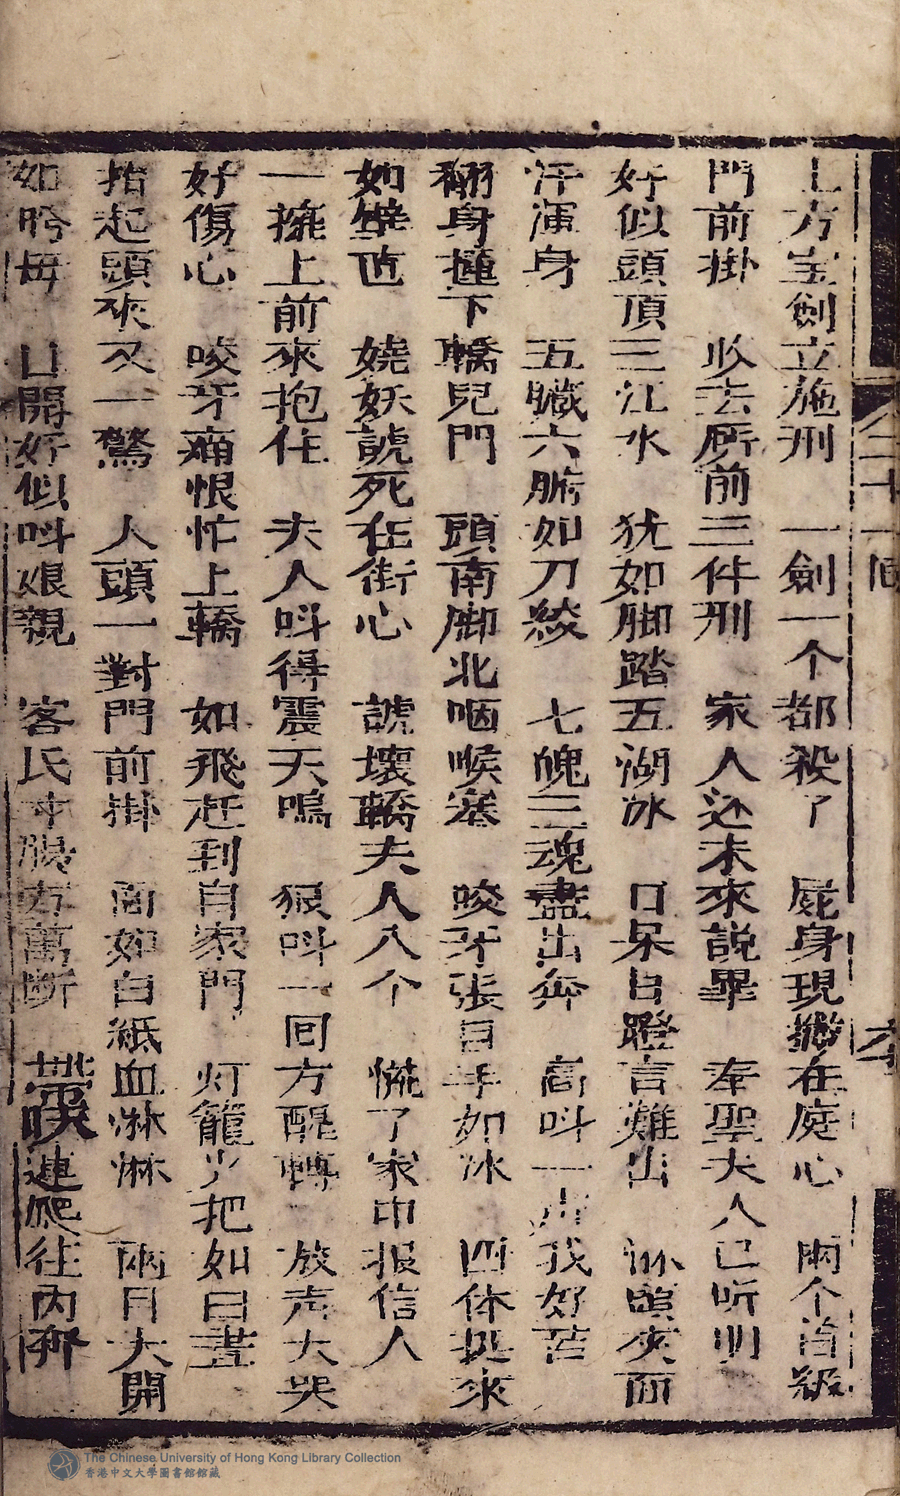 上方宝劍立施刑　一劍一个都殺了　屍身現撇在庭心　兩个首級
門前掛　收去厛前三件刑　家人还未來説畢　奉聖夫人已听明
好似頭頂三江水　犹如脚踏五湖冰　口呆目蹬言難出　淋頭夾面
汗渾身　五臟六腑如刀絞　七魄三魂盡出奔　高呌一声我好苦
翻身撞下轎兒門　頭南脚北咽喉塞　咬牙張目手如冰　四体挺來
如壁直　嬈妖諕死在街心　諕壞轎夫人八个　慌了家中报信人
一擁上前來抱住　夫人呌得震天鳴　狠呌一回方醒轉　放声大哭
好傷心　咬牙痛恨忙上轎　如飛赶到自家門　灯籠火把如日晝
抬起頭來又一驚　人頭一對門前掛　面如白紙血淋淋　兩目大開
如盻母　口開好似呌娘親　客氏寸腸方萬斷　帶哭連爬往內奔
二十一回
The Chinese University of Hong Kong Library Collection
香港中文大學圖書館館藏